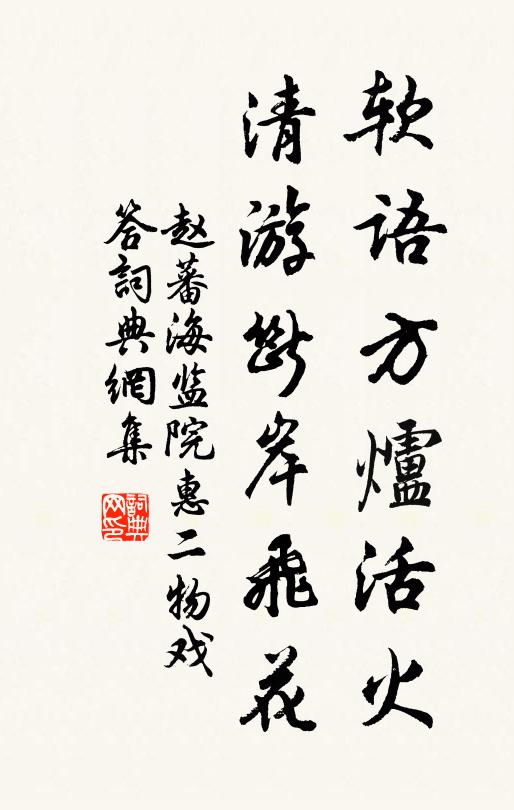 软语方爐活火
清游断岸飛花
赵蕃海监院惠二物戏
答詞典網集
詞典
网印